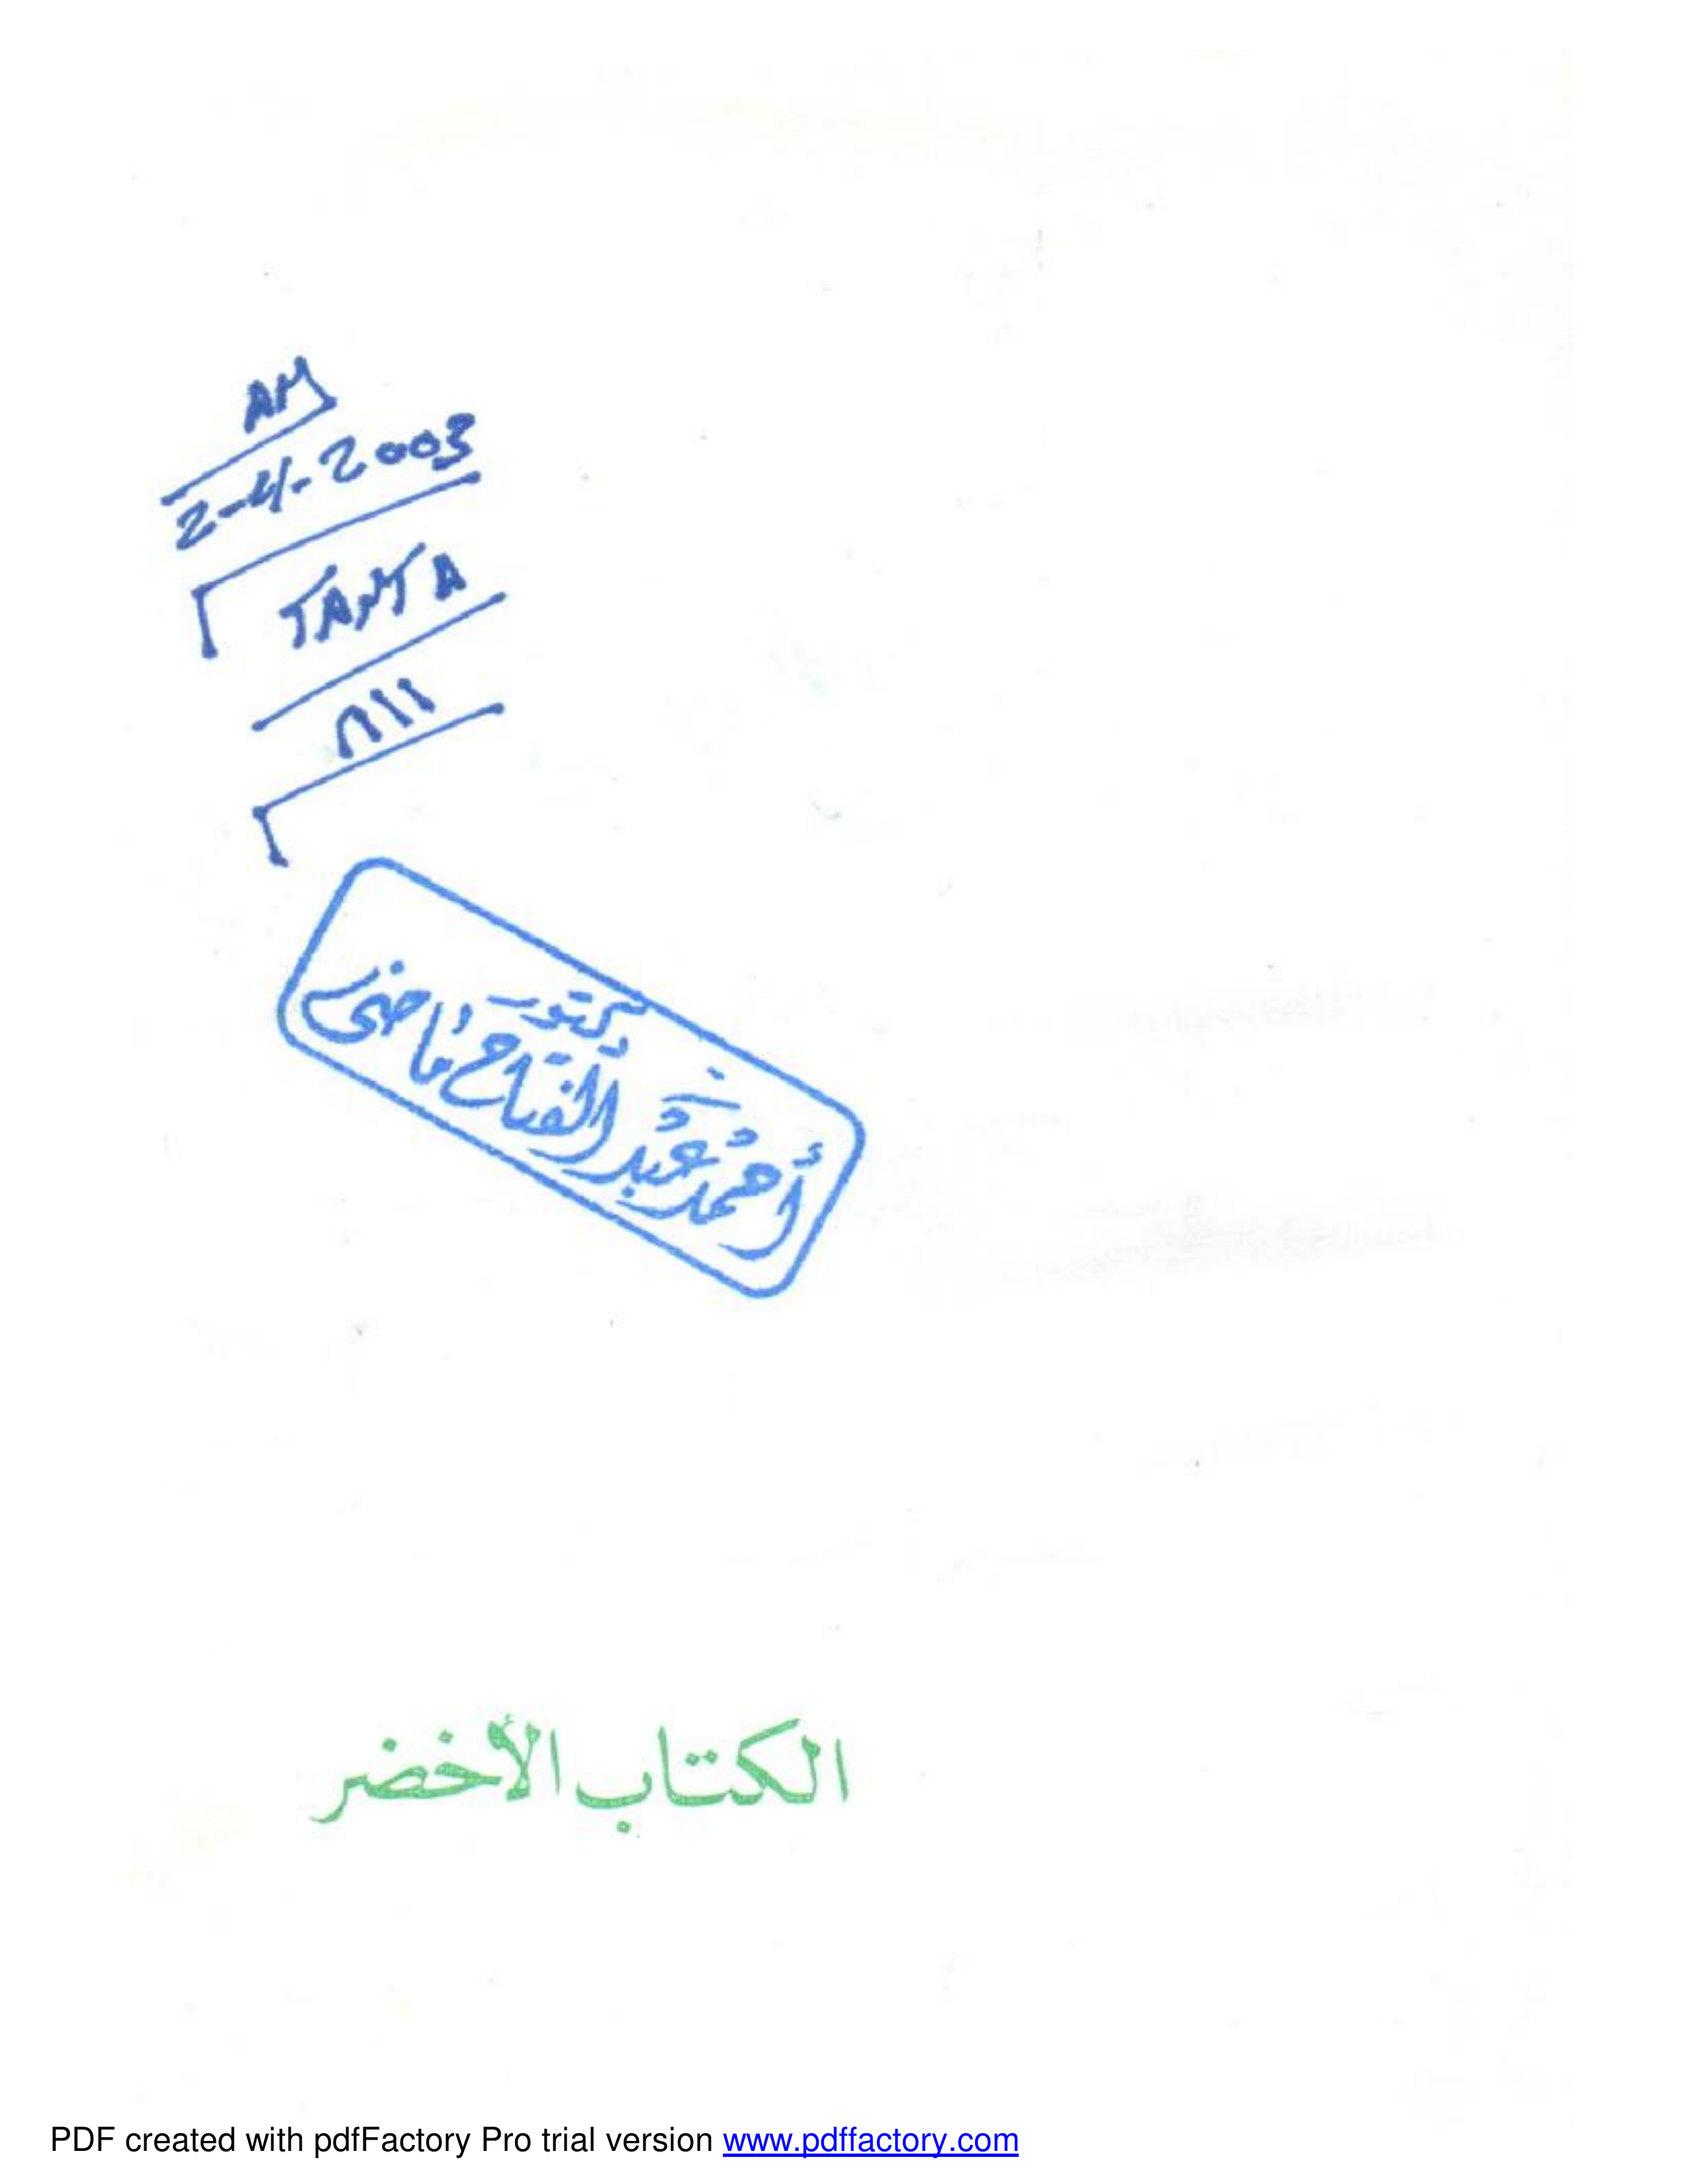 AM
2-4-2003
TANTA
دكتور
أحمد عبد الفتاح ماضى
الكتاب الأخضر
PDF created with pdfFactory Pro trial version www.pdffactory.com